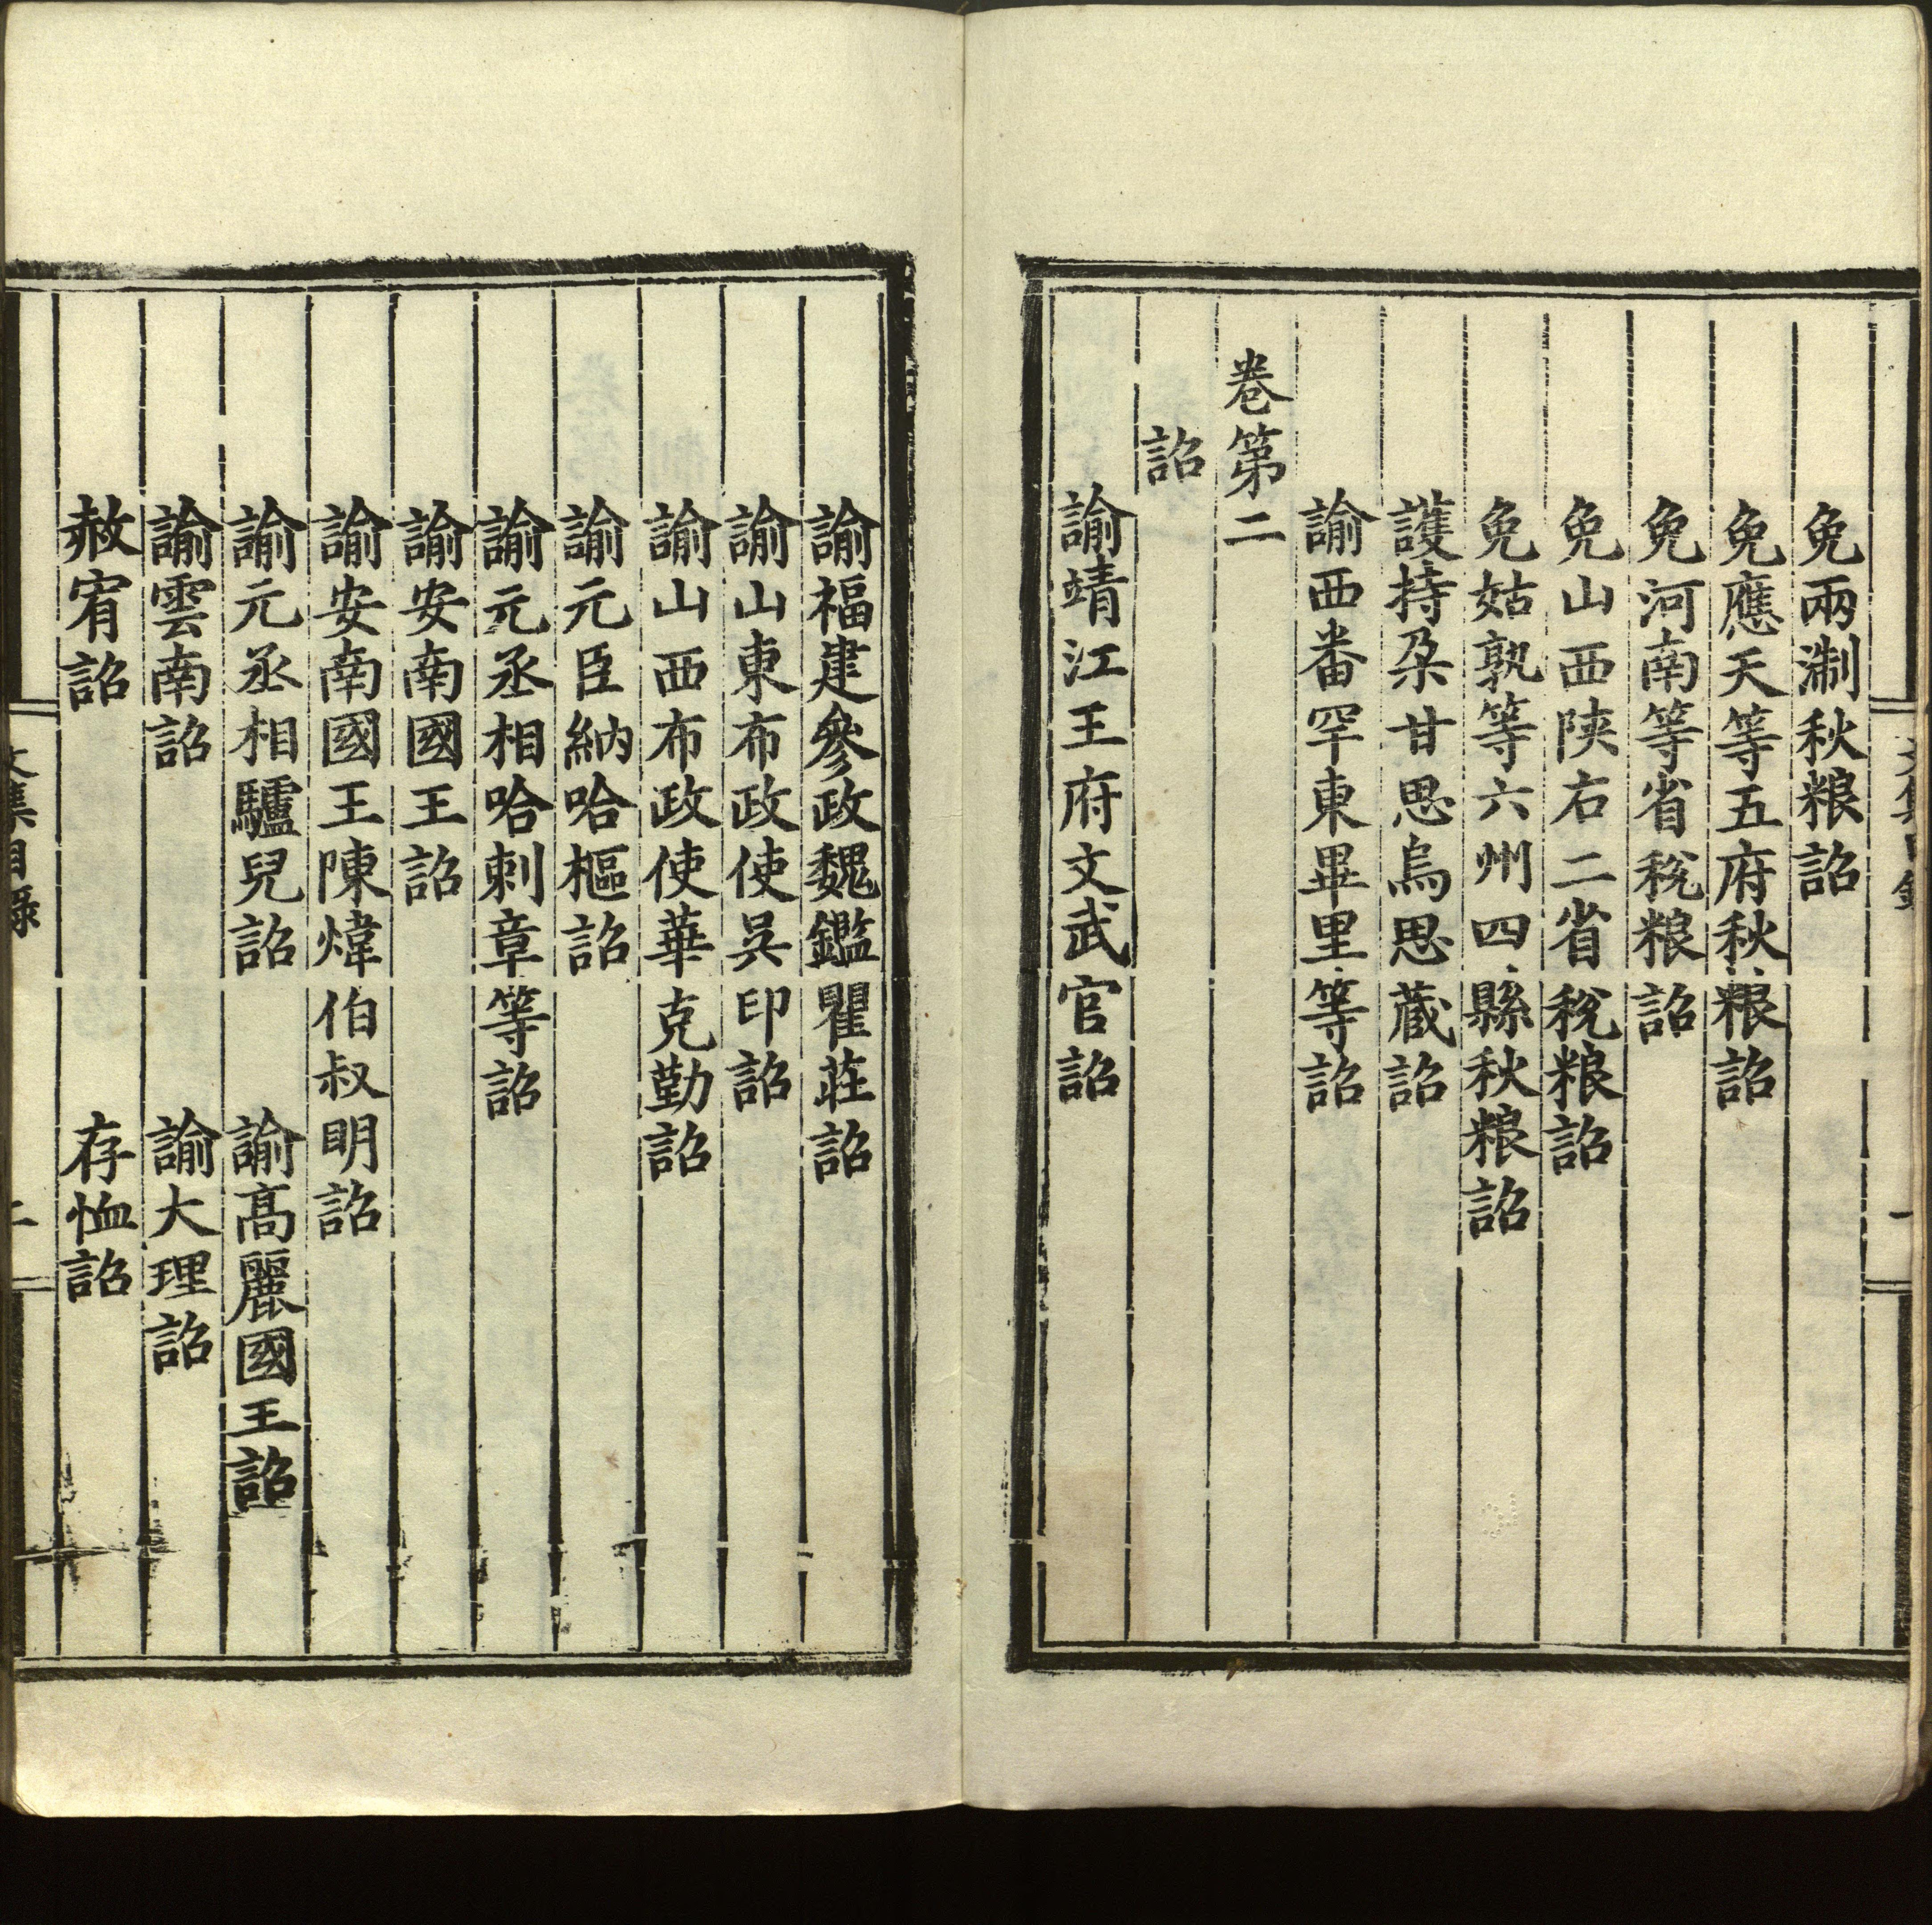 免兩淛秋粮詔
免應天等五府秋粮詔
免河南等省稅粮詔
免山西陝右二省稅粮詔
免姑孰等六州四縣秋粮詔
護持朶甘思烏思藏詔
諭西番罕東畢里等詔
卷第二
詔
諭靖江王府文武官詔
諭福建參政魏鑑瞿莊詔
諭山東布政使吳印詔
諭山西布政使華克勤詔
諭元臣納哈樞詔
諭元丞相哈剌章等詔
諭安南國王詔
諭安南國王陳煒伯叔明詔
諭元丞相驢兒詔　諭髙麗國王詔
諭雲南詔　諭大理詔
赦宥詔　存恤詔
集目錄